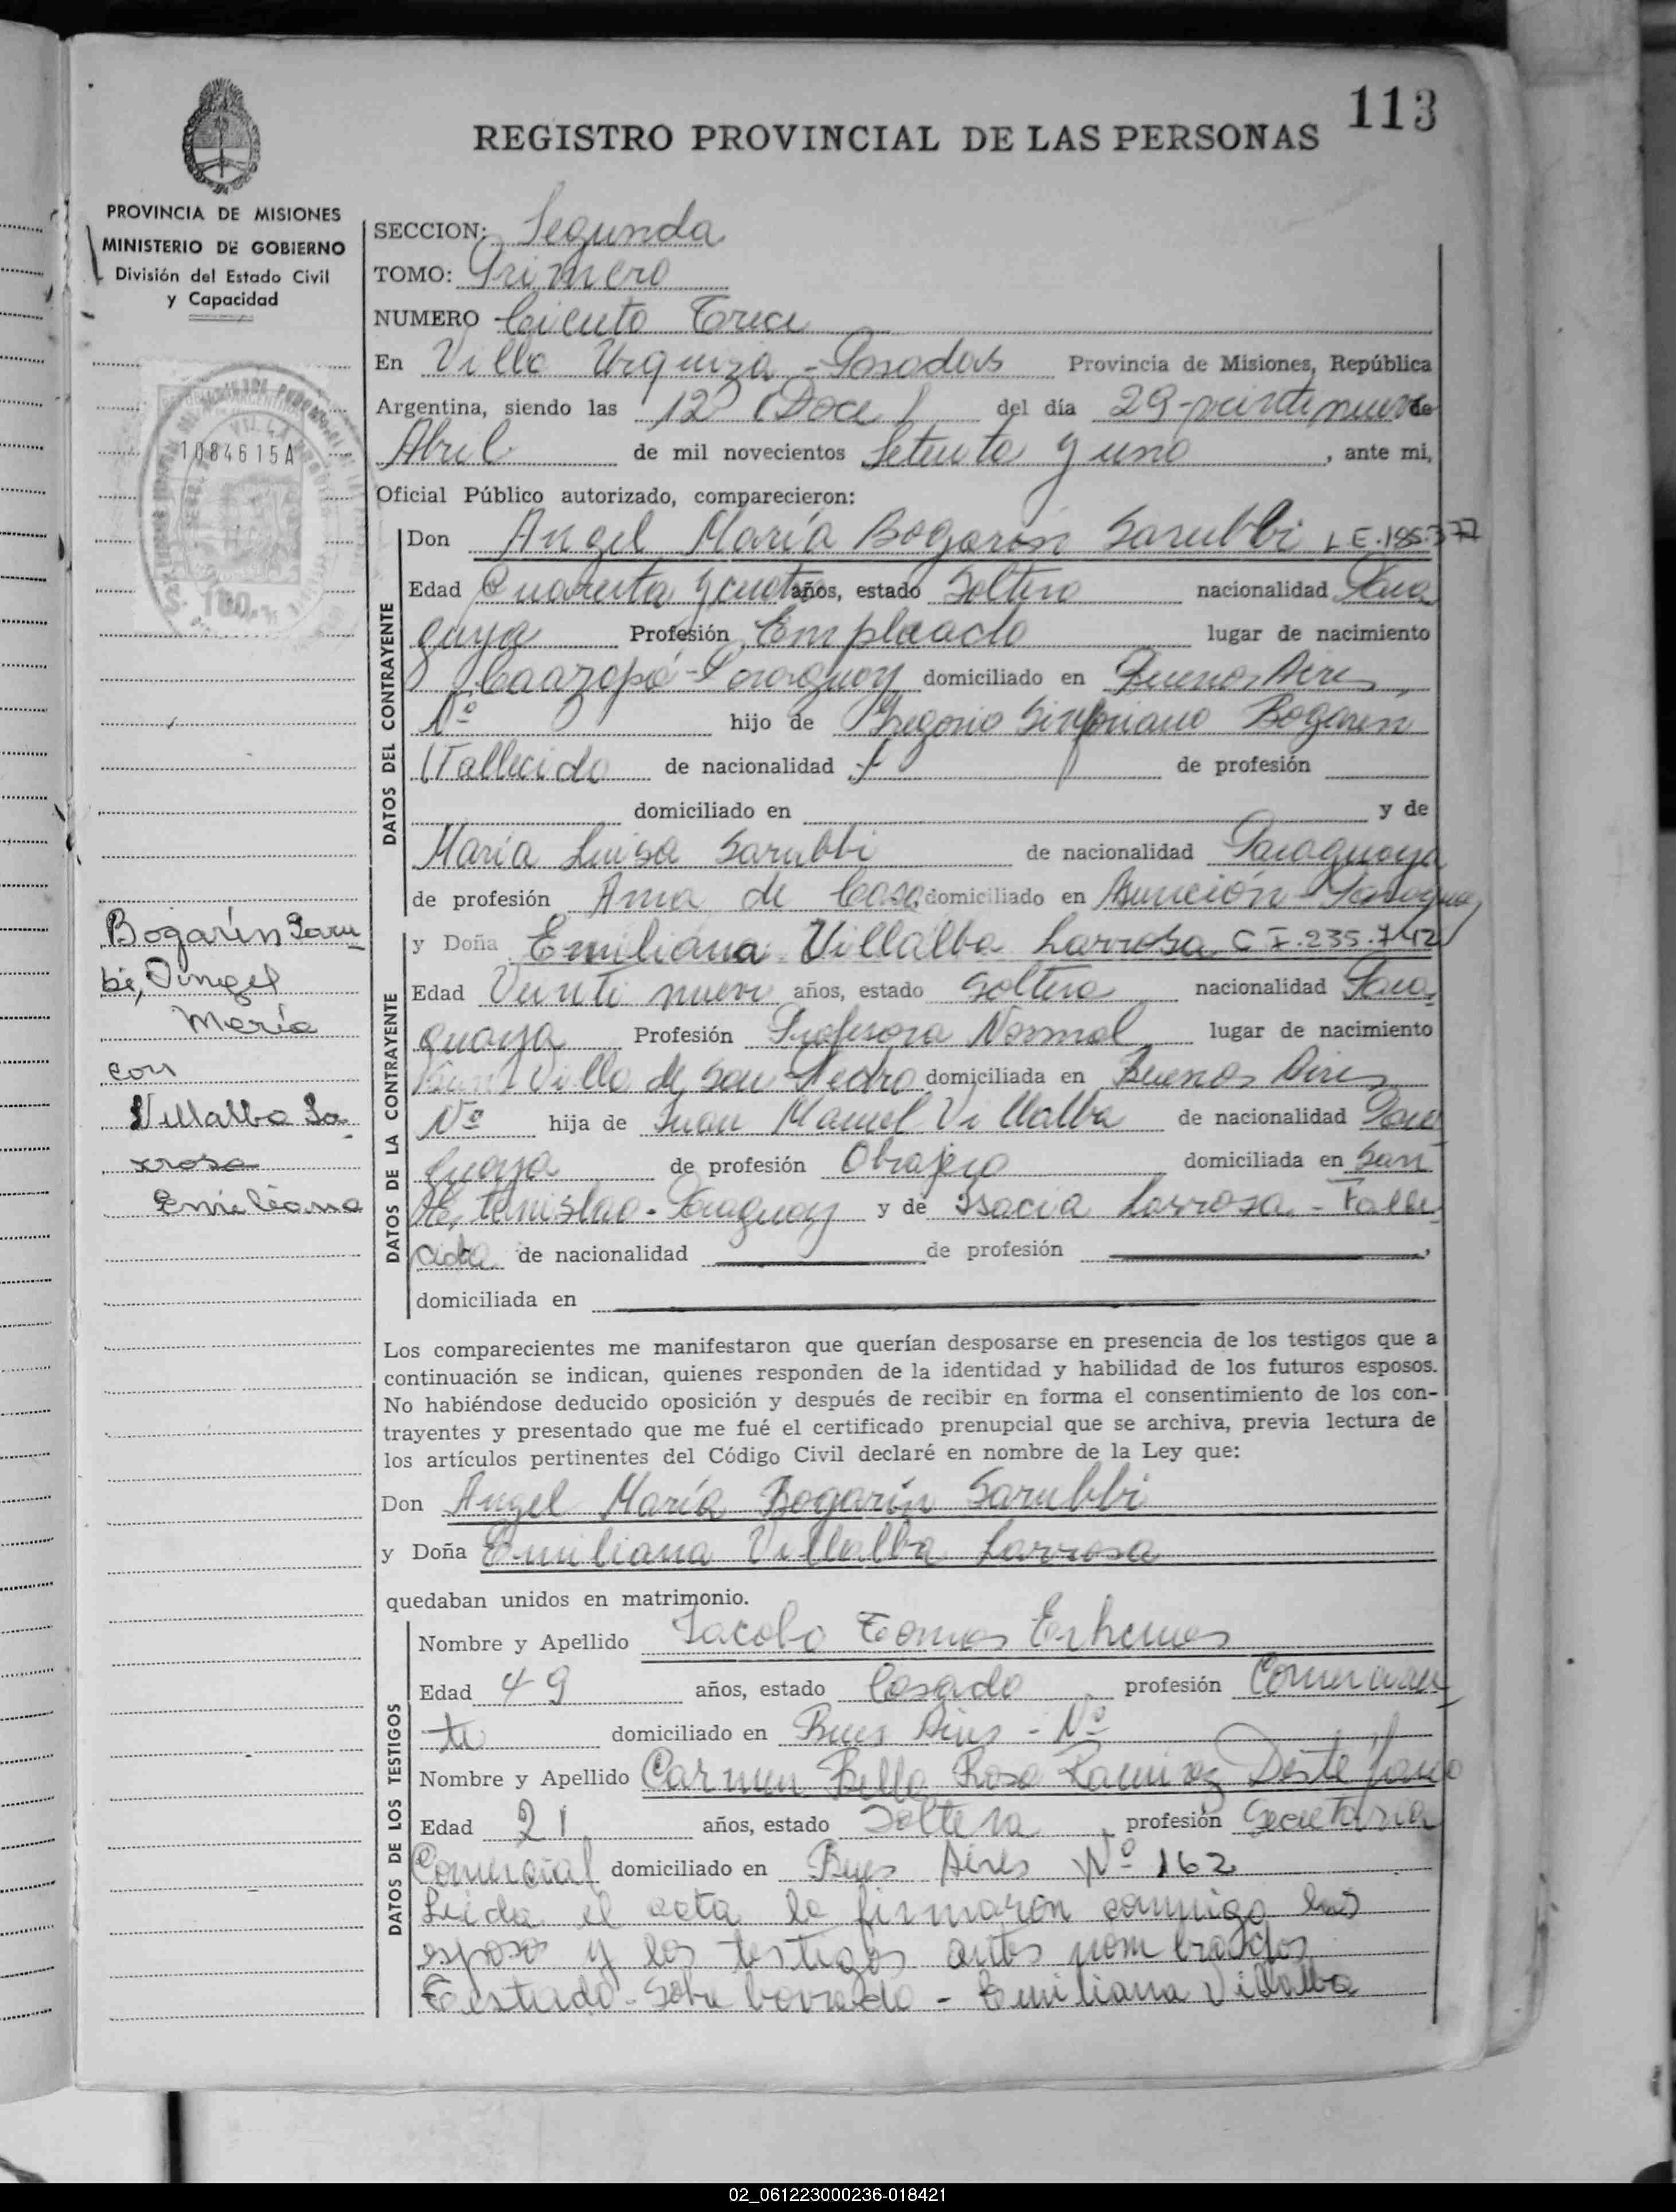 113
REGISTRO PROVINCIAL DE LAS PERSONAS
PROVINCIA DE MISIONES
MINISTERIO DE GOBIERNO
División del Estado Civil
y Capacidad
1084615A
SECCION: Segunda
TOMO: Primero
NUMERO Ciento Trece
En Villa Urquiza - Posadas Provincia de Misiones, República
Argentina, siendo las 12 (Doce) del día 29-veintinueve de
Abril de mil novecientos Setenta y uno, ante mi,
Oficial Público autorizado, comparecieron:
DATOS DEL CONTRAYENTE
Don Angel María Bogarín Sarubbi L.E.195.377
Edad Cuarenta y cuatro años, estado Soltero nacionalidad Para
guaya Profesión Empleado lugar de nacimiento
Caazapá-Paraguay domiciliado en Buenos Aires
Nº hijo de Gregorio Sinforiano Bogarín
(Fallecido de nacionalidad de profesión
domiciliado en y de
María Luisa Sarubbi de nacionalidad Paraguaya
de profesión Ama de Casa domiciliado en Asunción-Paraguay
DATOS DE LA CONTRAYENTE
y Doña Emiliana Villalba Larrosa C I.235.742
Edad Veinti nueve años, estado Soltera nacionalidad Para
guaya Profesión Profesora Normal lugar de nacimiento
Villa de San Pedro domiciliada en Buenos Aires
Nº hija de Juan Manuel Villalba de nacionalidad Para
guaya de profesión Obrajero domiciliada en San
Estanislao-Paraguay y de Isacia Larrosa - Falle
cida de nacionalidad de profesión
domiciliada en
Bogarín Saru
bi, Angel
María
con
Villalba La
rrosa
Emiliana
Los comparecientes me manifestaron que querían desposarse en presencia de los testigos que a
continuación se indican, quienes responden de la identidad y habilidad de los futuros esposos.
No habiéndose deducido oposición y después de recibir en forma el consentimiento de los con-
trayentes y presentado que me fué el certificado prenupcial que se archiva, previa lectura de
los artículos pertinentes del Código Civil declaré en nombre de la Ley que:
Don Angel María Bogarín Sarubbi
y Doña Emiliana Villalba Larrosa
quedaban unidos en matrimonio.
DATOS DE LOS TESTIGOS
Nombre y Apellido Jacobo Tomas
Edad 49 años, estado Casado profesión Comercian
te domiciliado en Bues Aires - Nº
Nombre y Apellido Carmen Bella Rosa Ramirez Destefano
Edad 21 años, estado Soltera, profesión Secretaria
Comercial domiciliado en Bues Aires Nº 162
Leida el acta la firmaron conmigo los
esposos y los testigos antes nombrados
Testado - Sobre borrado - Emiliana Villalba
02_061223000236-018421